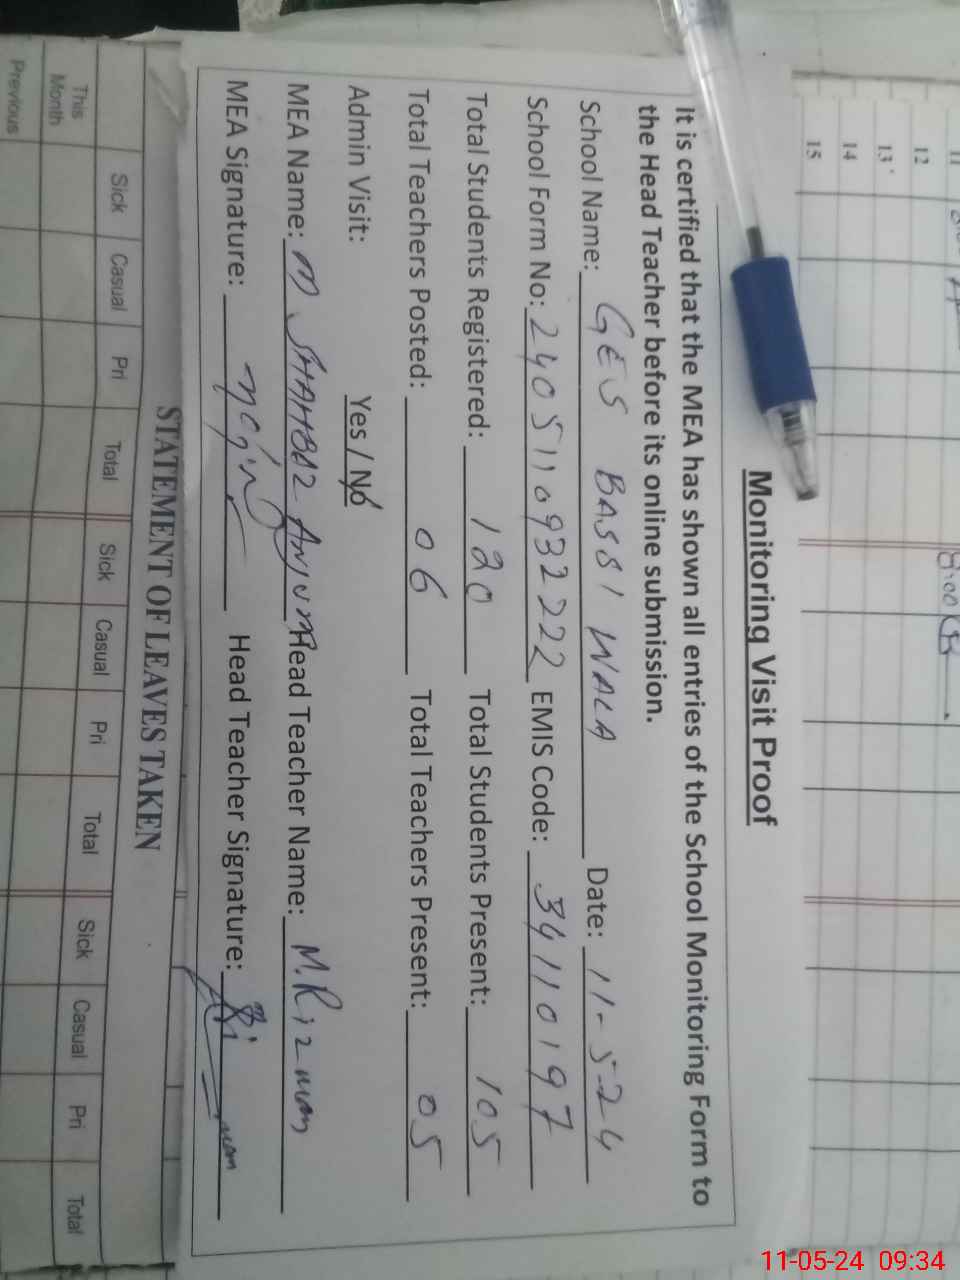 11
12
13
14
15
8:00
Monitoring Visit Proof
It is certified that the MEA has shown all entries of the School Monitoring Form to
the Head Teacher before its online submission.
School Name: GES BASSI WALA Date: 11-5-24
School Form No: 2405110932222 EMIS Code: 34110197
Total Students Registered: 120 Total Students Present: 105
Total Teachers Posted: 06 Total Teachers Present: 05
Admin Visit: Yes / No
MEA Name: M SHAHBAZ Anjum Head Teacher Name: M.Rizwan
MEA Signature: Head Teacher Signature:
STATEMENT OF LEAVES TAKEN
Sick Casual Pri Total Sick Casual Pri Total Sick Casual Pri Total
This
Month
Previous
11-05-24 09:34